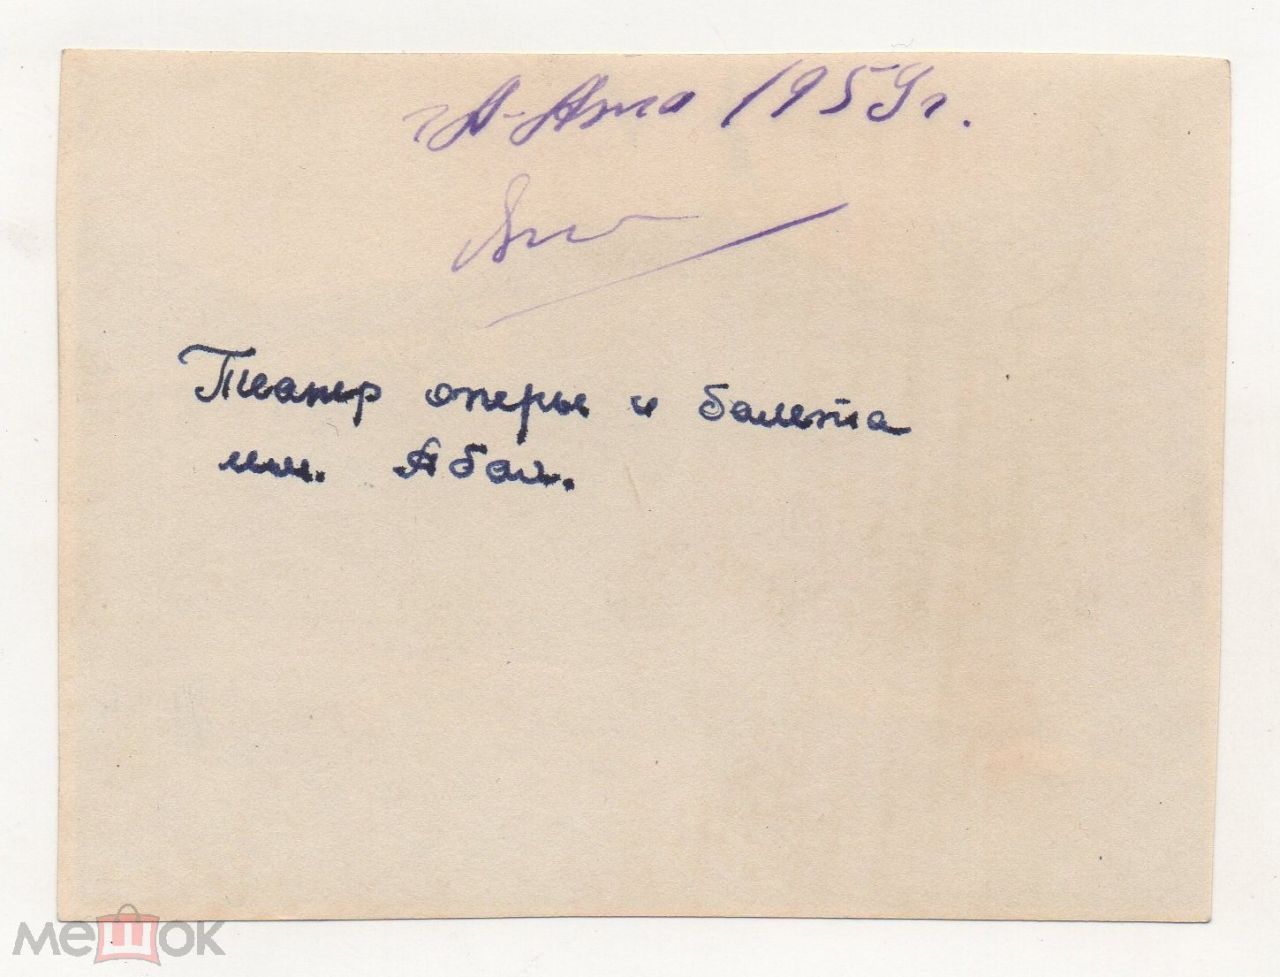 г. А-Ата 1959 г.
Театр оперы и балета
им. Абая.
мешок